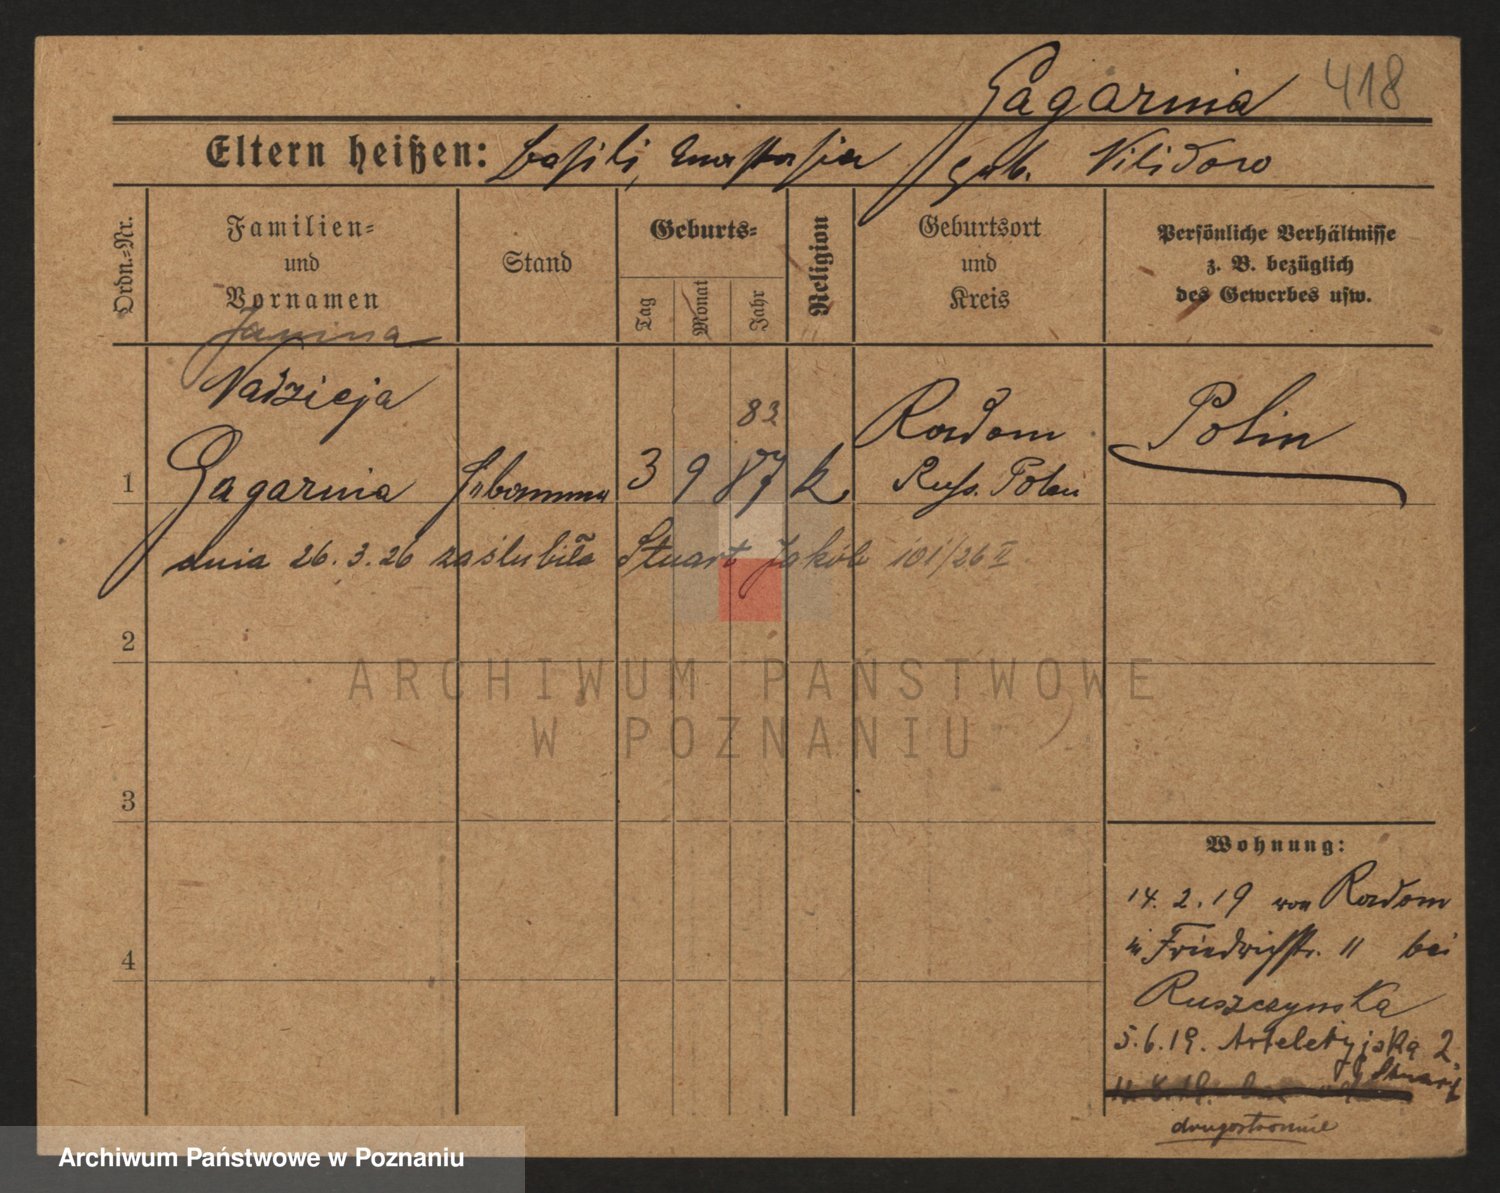 Gagarnia 418
Eltern heißen: Basili, Anastasia geb. Nilidoro
Ordn.-Nr.
Familien-
und
Vornamen
Stand
Geburts-
Tag
Monat
Jahr
Religion
Geburtsort
und
Kreis
Persönliche Verhältnisse
z. B. bezüglich
des Gewerbes usw.
Janina
Nadzieja
83
Radom
Polin
1 Gagarnia 3 9 87 k. Russ. Polen
dnia 26.3.26 zaślubiła Stuart Jakób 101/26 II
2
ARCHIWUM PAŃSTWOWE
W POZNANIU
3
Wohnung:
14. 2. 19 von Radom
in Friedrichstr. 11 bei
4
Ruszczynska
5.6.19. 2.
Stuart
drugostronnie
Archiwum Państwowe w Poznaniu